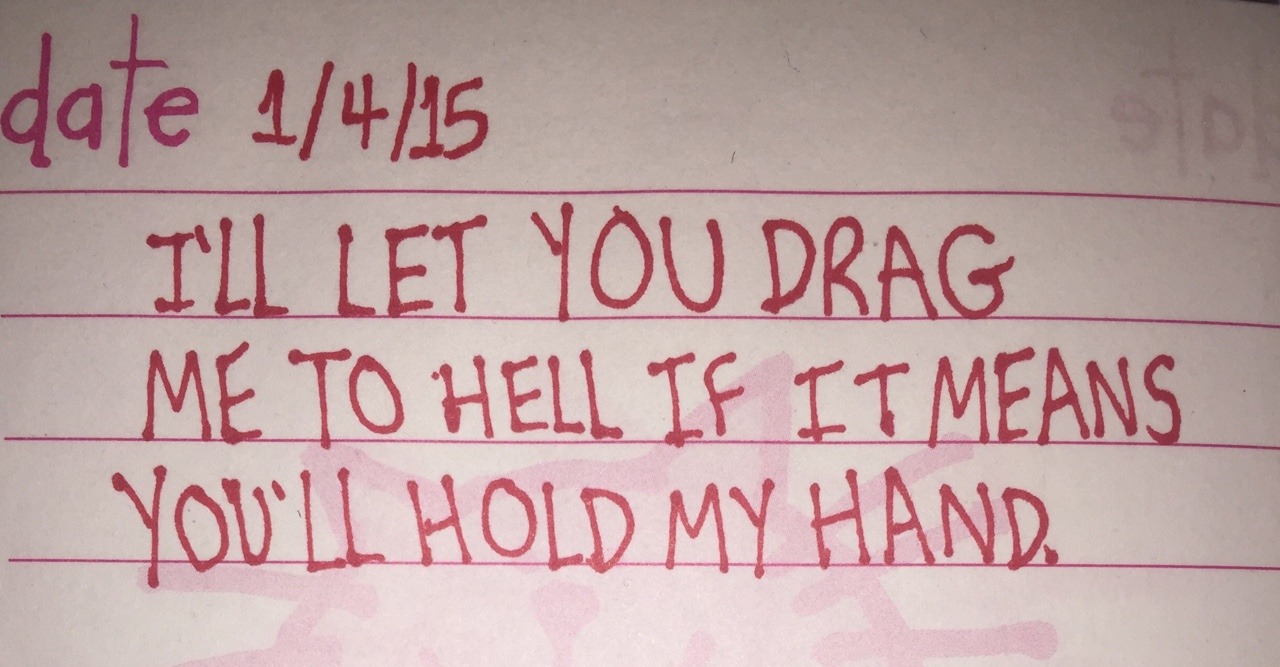 date 1/4/15
I'LL LET YOU DRAG
ME TO HELL IF IT MEANS
YOU'LL HOLD MY HAND.